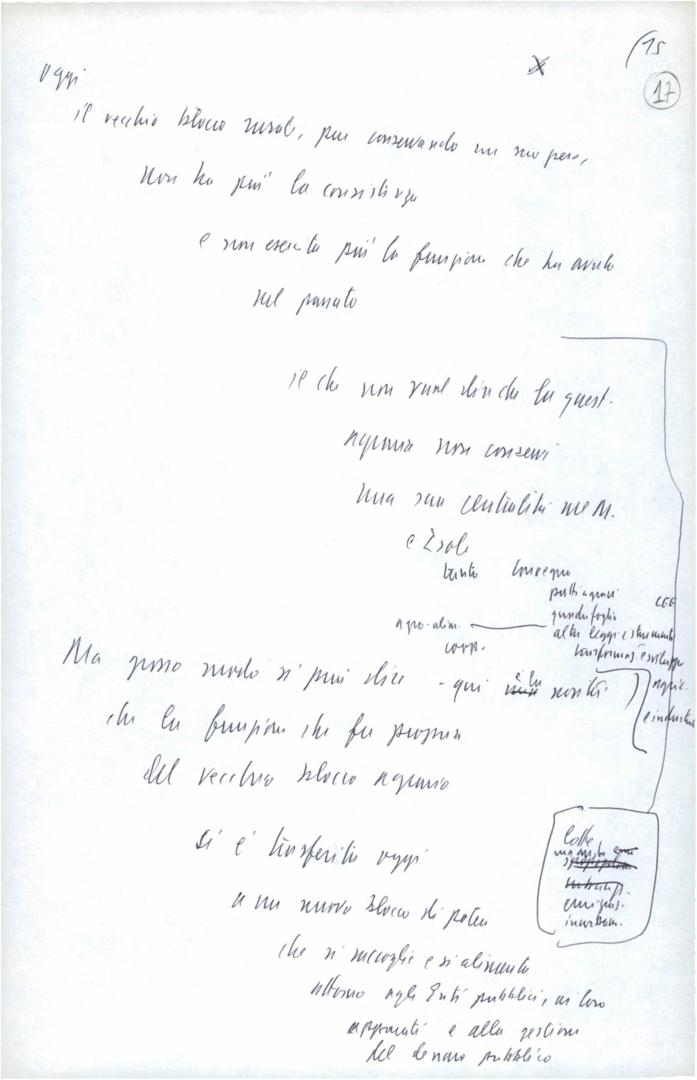 (15
17
oggi
il vecchio blocco rurale, pur conservando un suo peso,
non ha più la consistenza
e non esercita più la funzione che ha avuto
nel passato
Il che non vuol dire che la quest.
agraria non conservi
una sua centralità nel M.
e Isole
tanto
Convegno
patti agrari
quadrifoglio
CEE
agro-alim.
altre leggi e strumenti
coop.
trasformaz. e sviluppo
agric.
e industria
Ma grosso modo si può dire - qui è la novità
che la funzione che fu propria
del vecchio blocco agrario
si è trasferita oggi
a un nuovo blocco di potere
che si raccoglie e si alimenta
attorno agli Enti pubblici, ai loro
apparati e alla gestione
del denaro pubblico
Lotte
emigraz.